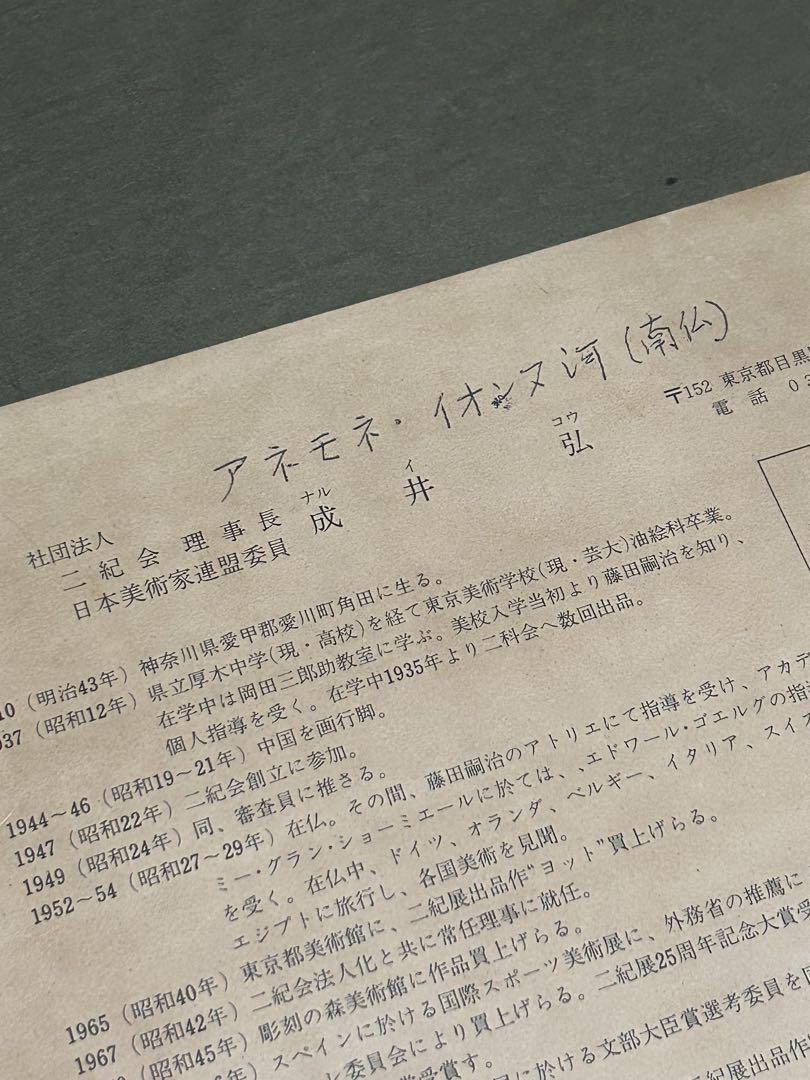 アネモネ・イオンヌ河(南仏)
〒152 東京都目黒
電話 03
社団法人
二紀会 理事長
日本美術家連盟委員
ナル イ コウ
成井 弘
10(明治43年)神奈川県愛甲郡愛川町角田に生る。
937(昭和12年)県立厚木中学(現・高校)を経て東京美術学校(現・芸大)油絵科卒業。
在学中は岡田三郎助教室に学ぶ。美校入学当初より藤田嗣治を知り、
個人指導を受く。在学中1935年より二科会へ数回出品。
1944~46(昭和19~21年)中国を画行脚。
1947(昭和22年)二紀会創立に参加。
1949(昭和24年)同、審査員に推さる。
1952~54(昭和27~29年)在仏。その間、藤田嗣治のアトリエにて指導を受け、アカデ
ミー・グラン・ショーミエールに於ては、、エドワール・ゴエルグの指
を受く。在仏中、ドイツ、オランダ、ベルギー、イタリア、スイ
エジプトに旅行し、各国美術を見聞。
1965(昭和40年)東京都美術館に、二紀展出品作“ヨット”買上げらる。
1967(昭和42年)二紀会法人化と共に常任理事に就任。
(昭和45年)彫刻の森美術館に作品買上げらる。
スペインに於ける国際スポーツ美術展に、外務省の推薦に
委員会により買上げらる。二紀展25周年記念大賞受
賞受賞す。
に於ける文部大臣賞選考委員を
二紀展出品作